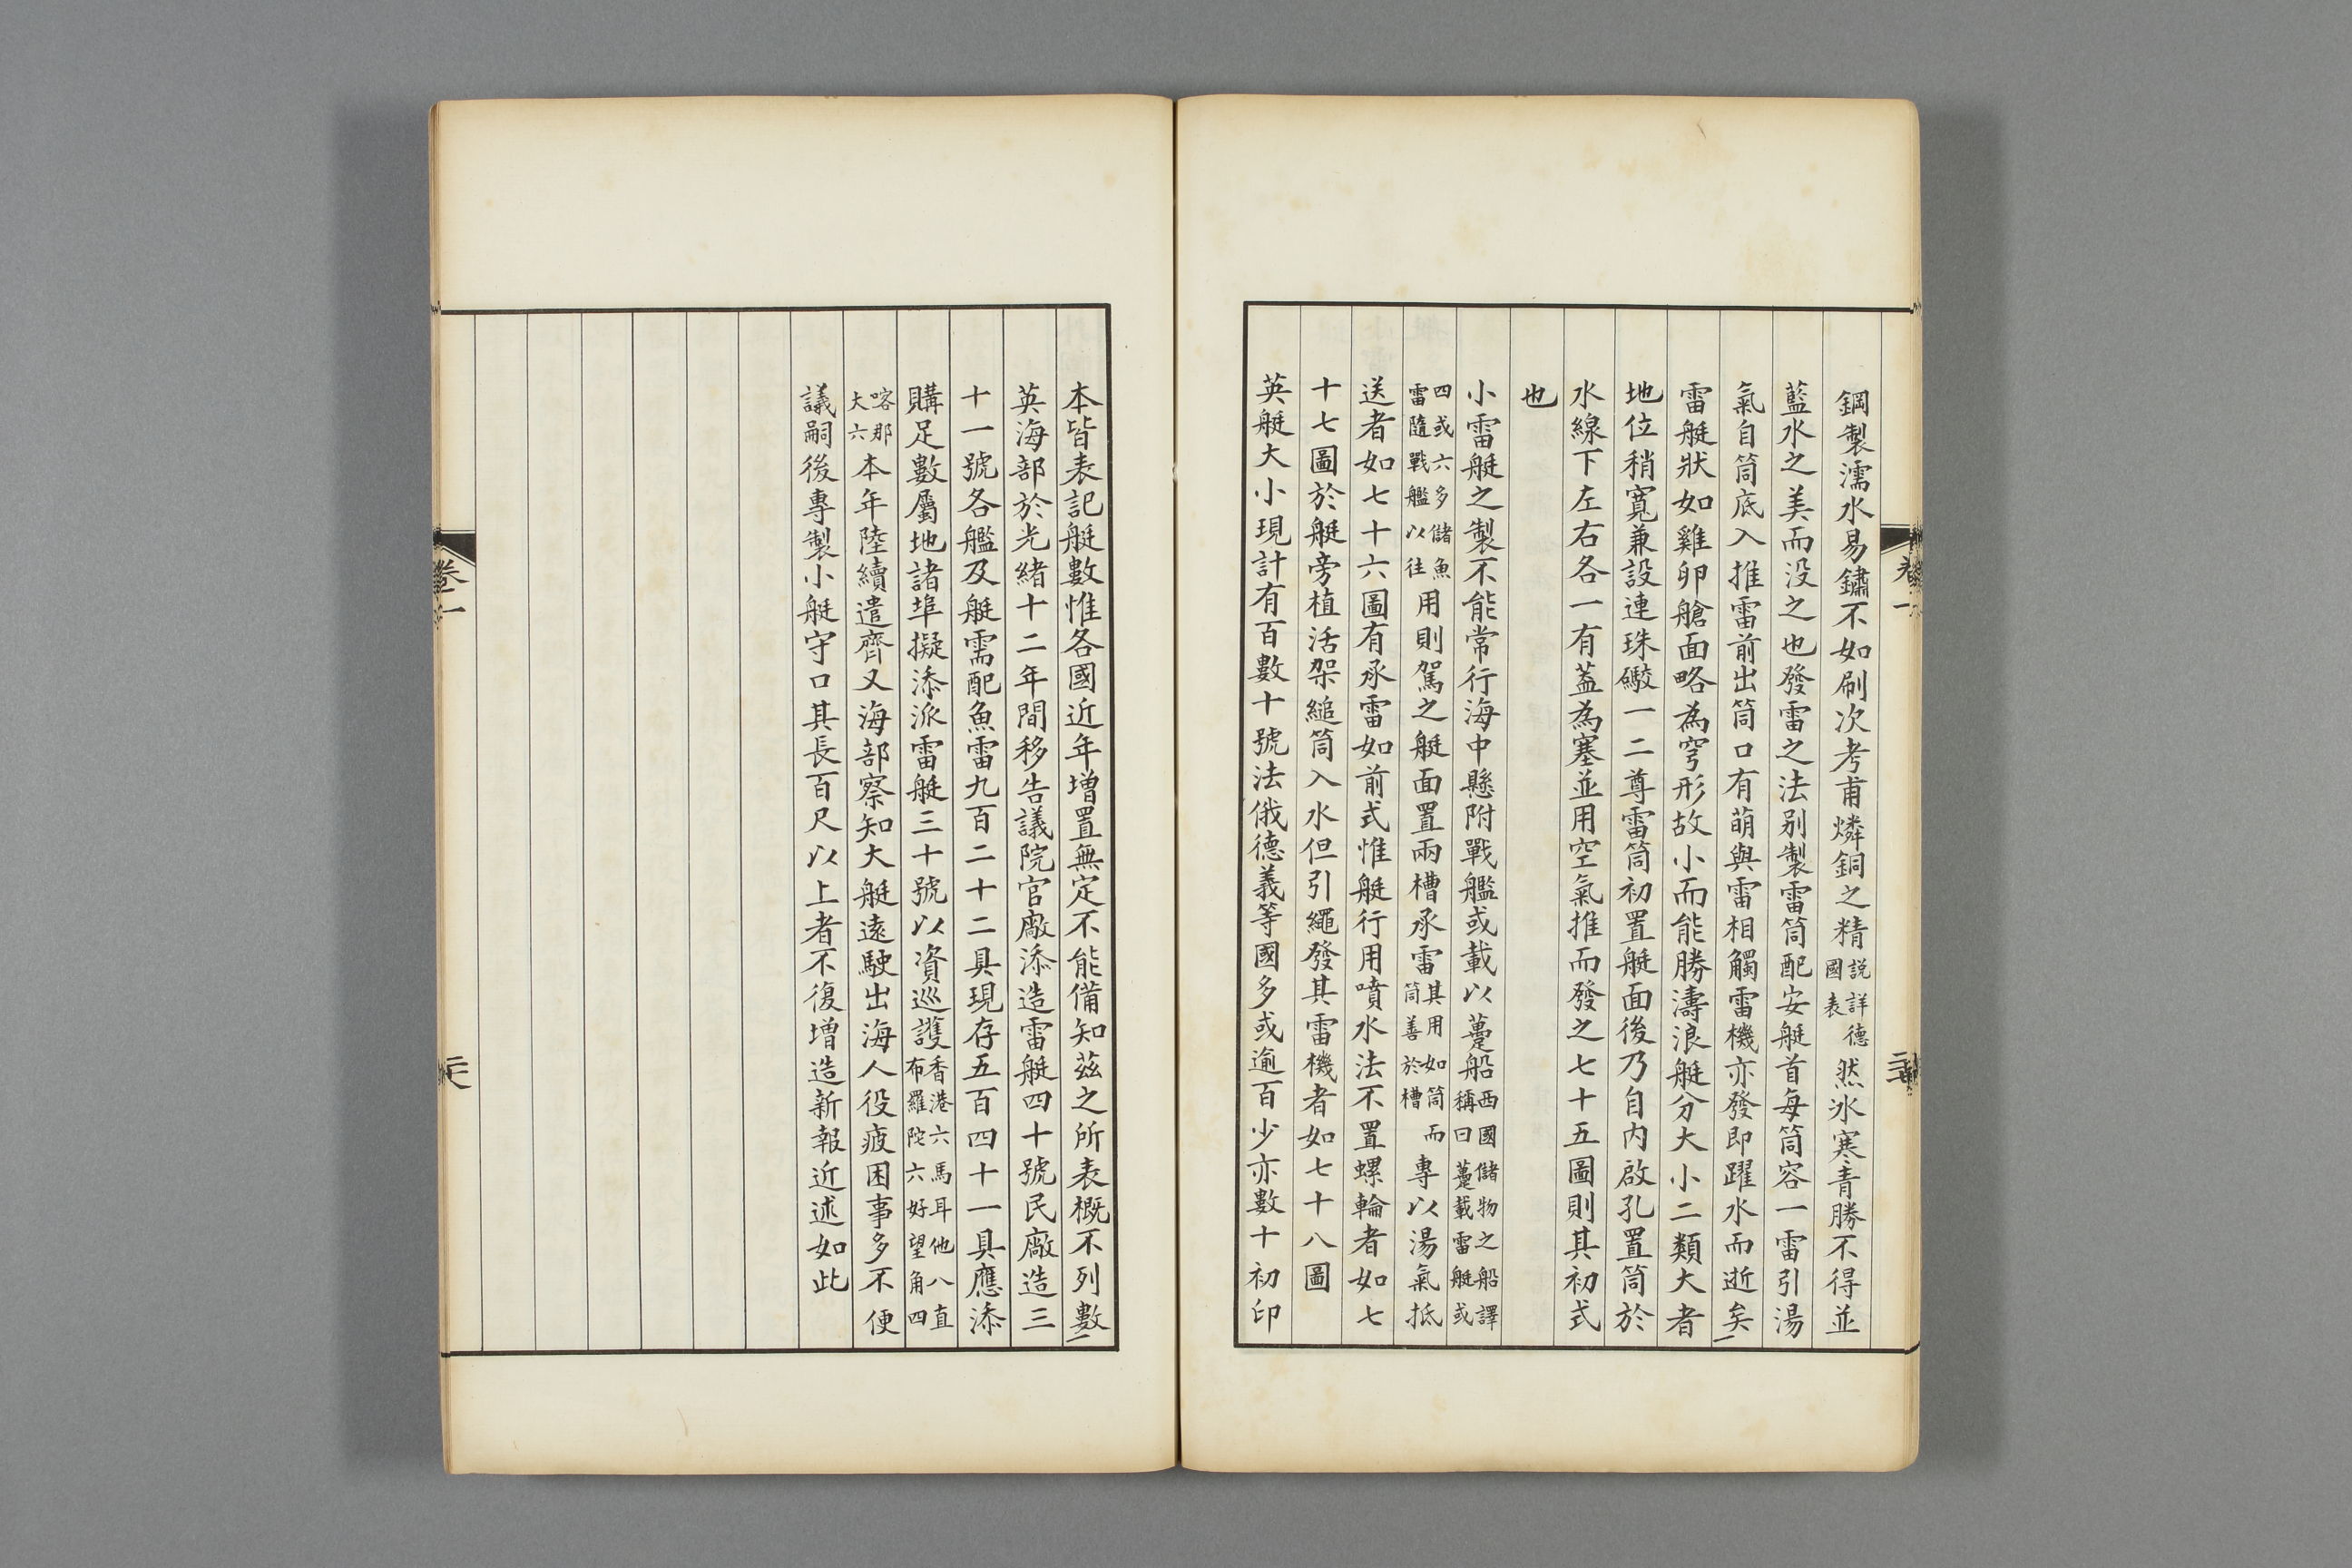 鋼製濡水易鏽不如刷次考甫燐銅之精說詳德國表然冰寒青勝不得並
藍水之美而没之也發雷之法别製雷筒配安艇首每筒容一雷引湯
氣自筒底入推雷前出筒口有萌與雷相觸雷機亦發即躍水而逝矣
雷艇狀如雞卵艙面略為穹形故小而能勝濤浪艇分大小二類大者
地位稍寬兼設連珠礮一二尊雷筒初置艇面後乃自内啟孔置筒於
水線下左右各一有蓋為塞並用空氣推而發之七十五圖則其初式
也
小雷艇之製不能常行海中懸附戰艦或載以躉船西國儲物之船譯稱曰躉載雷艇或
四或六多儲魚雷隨戰艦以往用則駕之艇面置兩槽承雷其用如筒而筒善於槽專以湯氣抵
送者如七十六圖有承雷如前式惟艇行用噴水法不置螺輪者如七
十七圖於艇旁植活架縋筒入水但引繩發其雷機者如七十八圖
英艇大小現計有百數十號法俄德義等國多或逾百少亦數十初印
卷一
本皆表記艇數惟各國近年增置無定不能備知茲之所表概不列數
英海部於光緒十二年間移告議院官廠添造雷艇四十號民廠造三
十一號各艦及艇需配魚雷九百二十二具現存五百四十一具應添
購足數屬地諸埠擬添派雷艇三十號以資巡護香港六馬耳他八直布羅陀六好望角四
喀那大六本年陸續遣齊又海部察知大艇遠駛出海人役疲困事多不便
議嗣後專製小艇守口其長百尺以上者不復增造新報近述如此
卷一